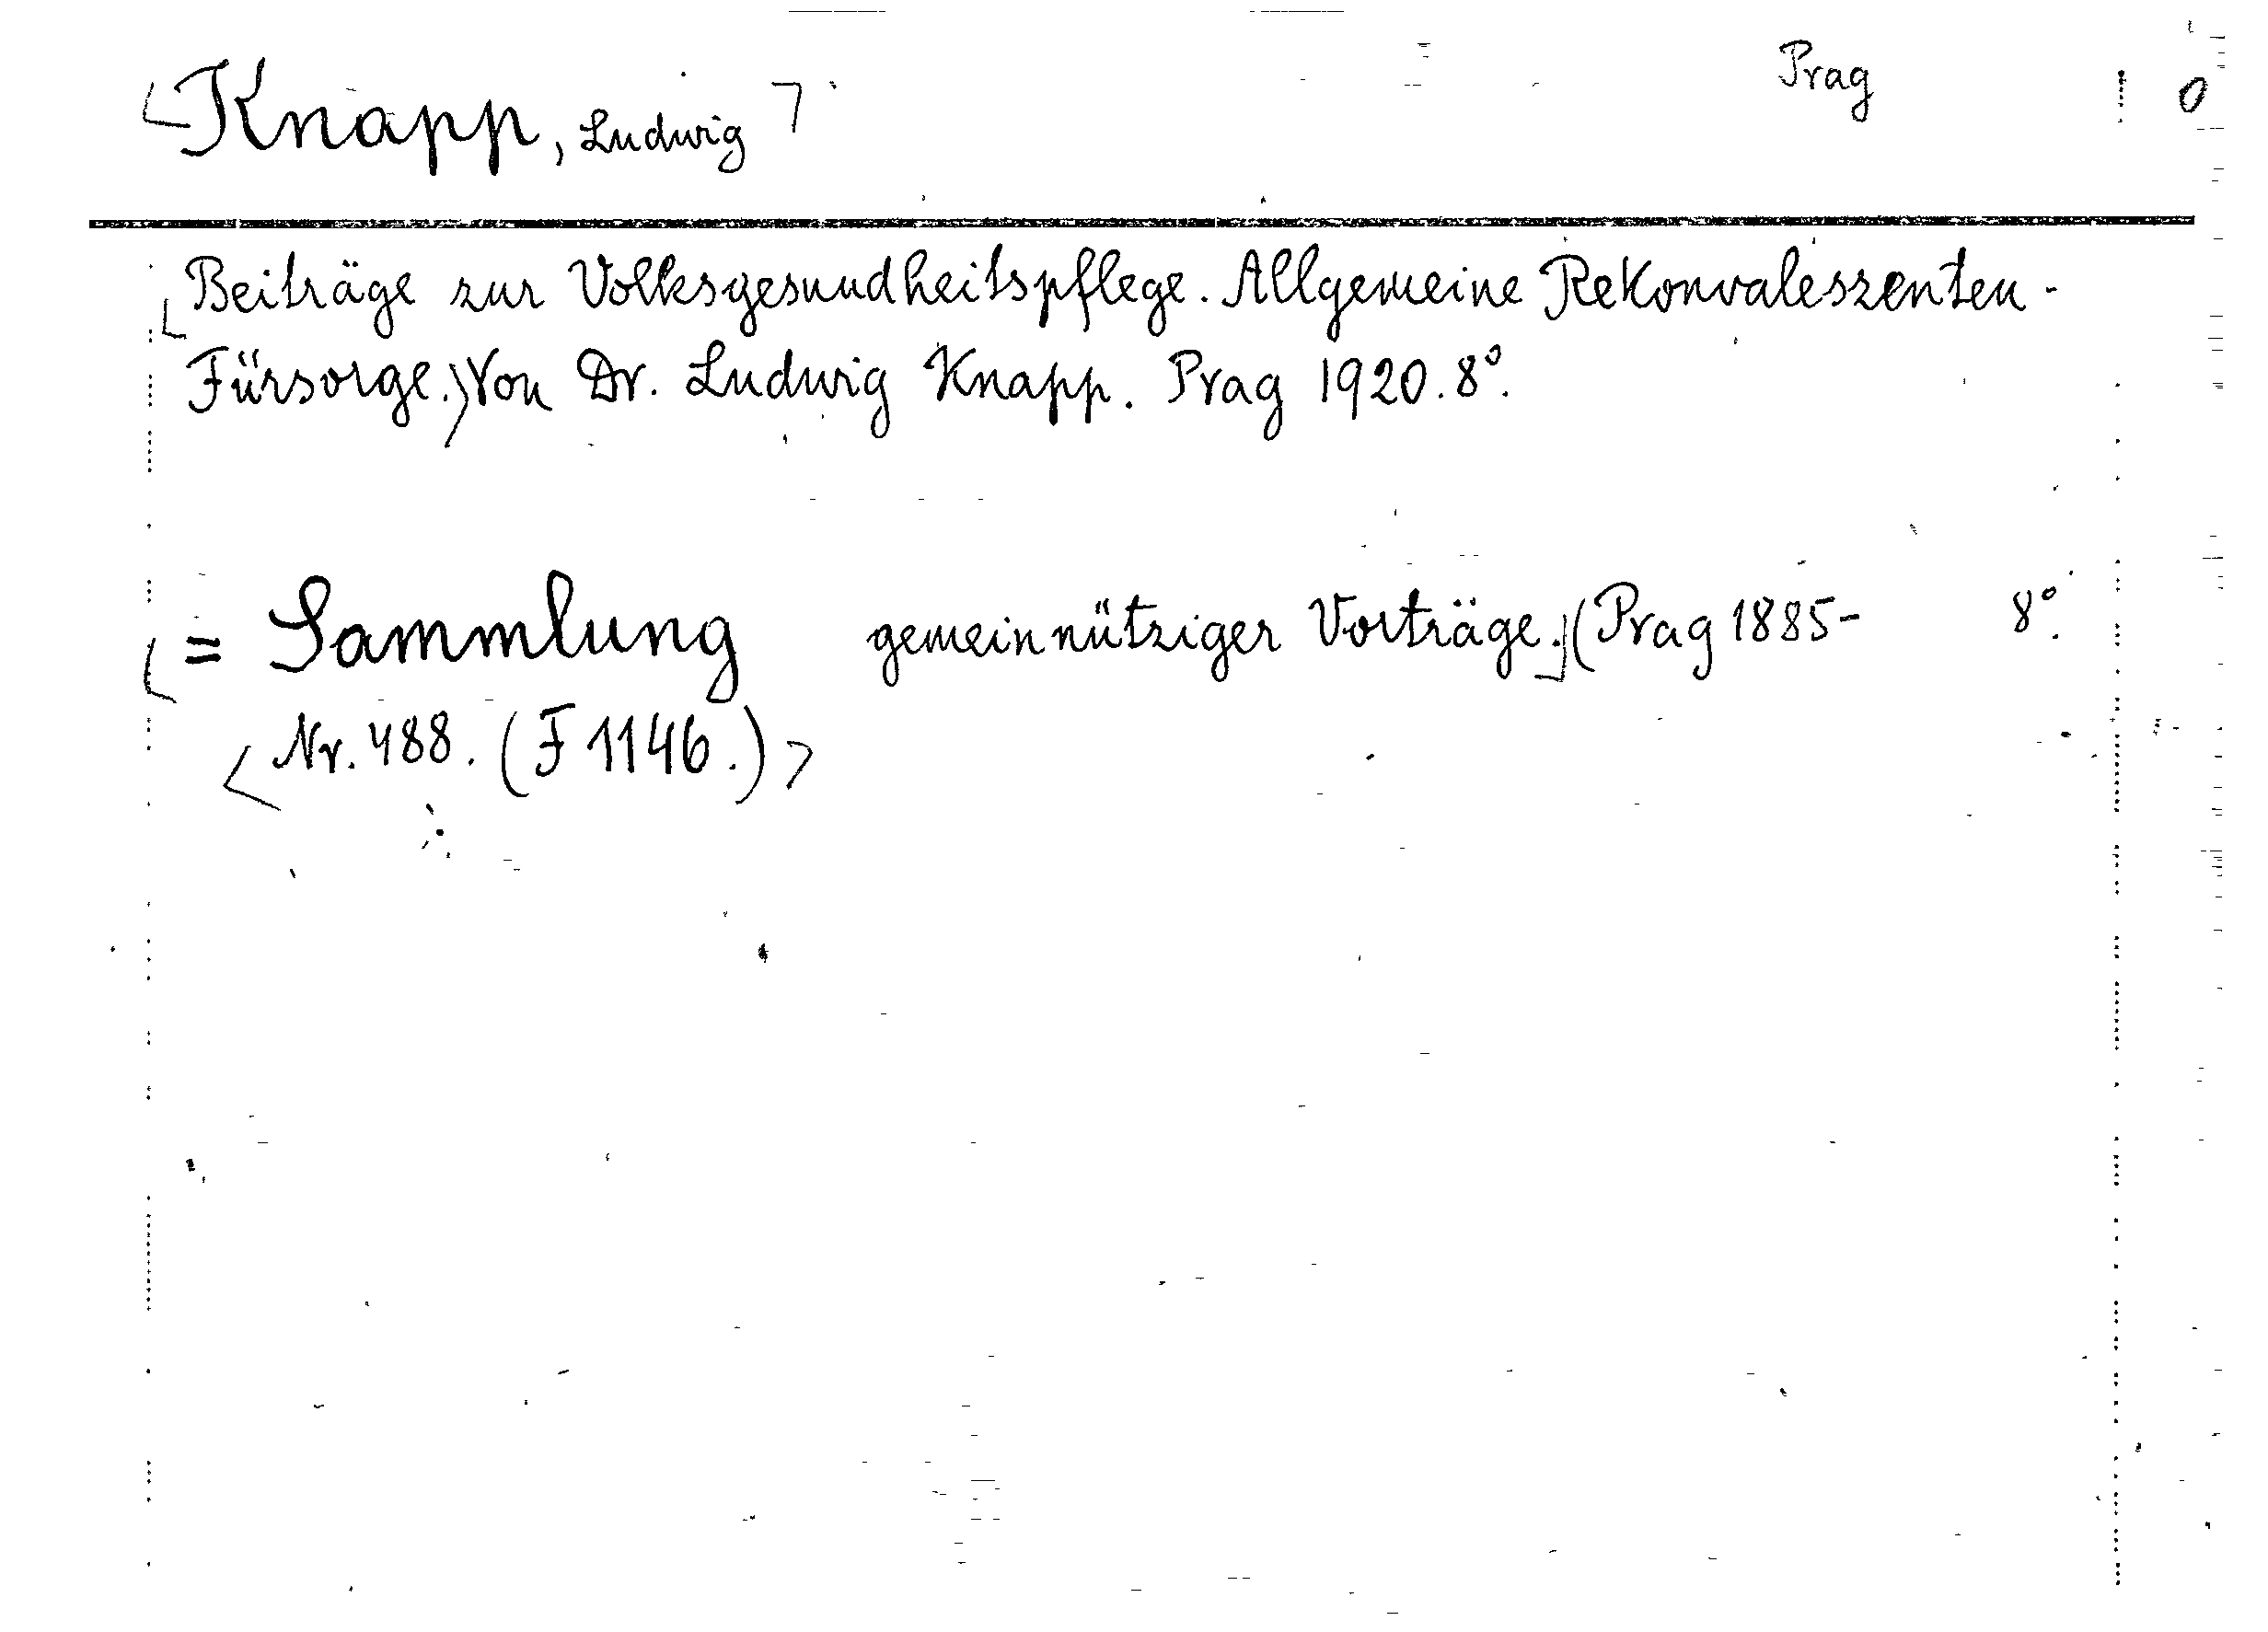 [Knapp, Ludwig] Prag 0
[Beiträge zur Volksgesundheitspflege. Allgemeine Rekonvaleszenten-
Fürsorge.) Von Dr. Ludwig Knapp. Prag 1920. 8°.
[= Sammlung gemeinnütziger Vorträge.] (Prag 1885- 8°.
<Nr. 488. (F 1146.)>